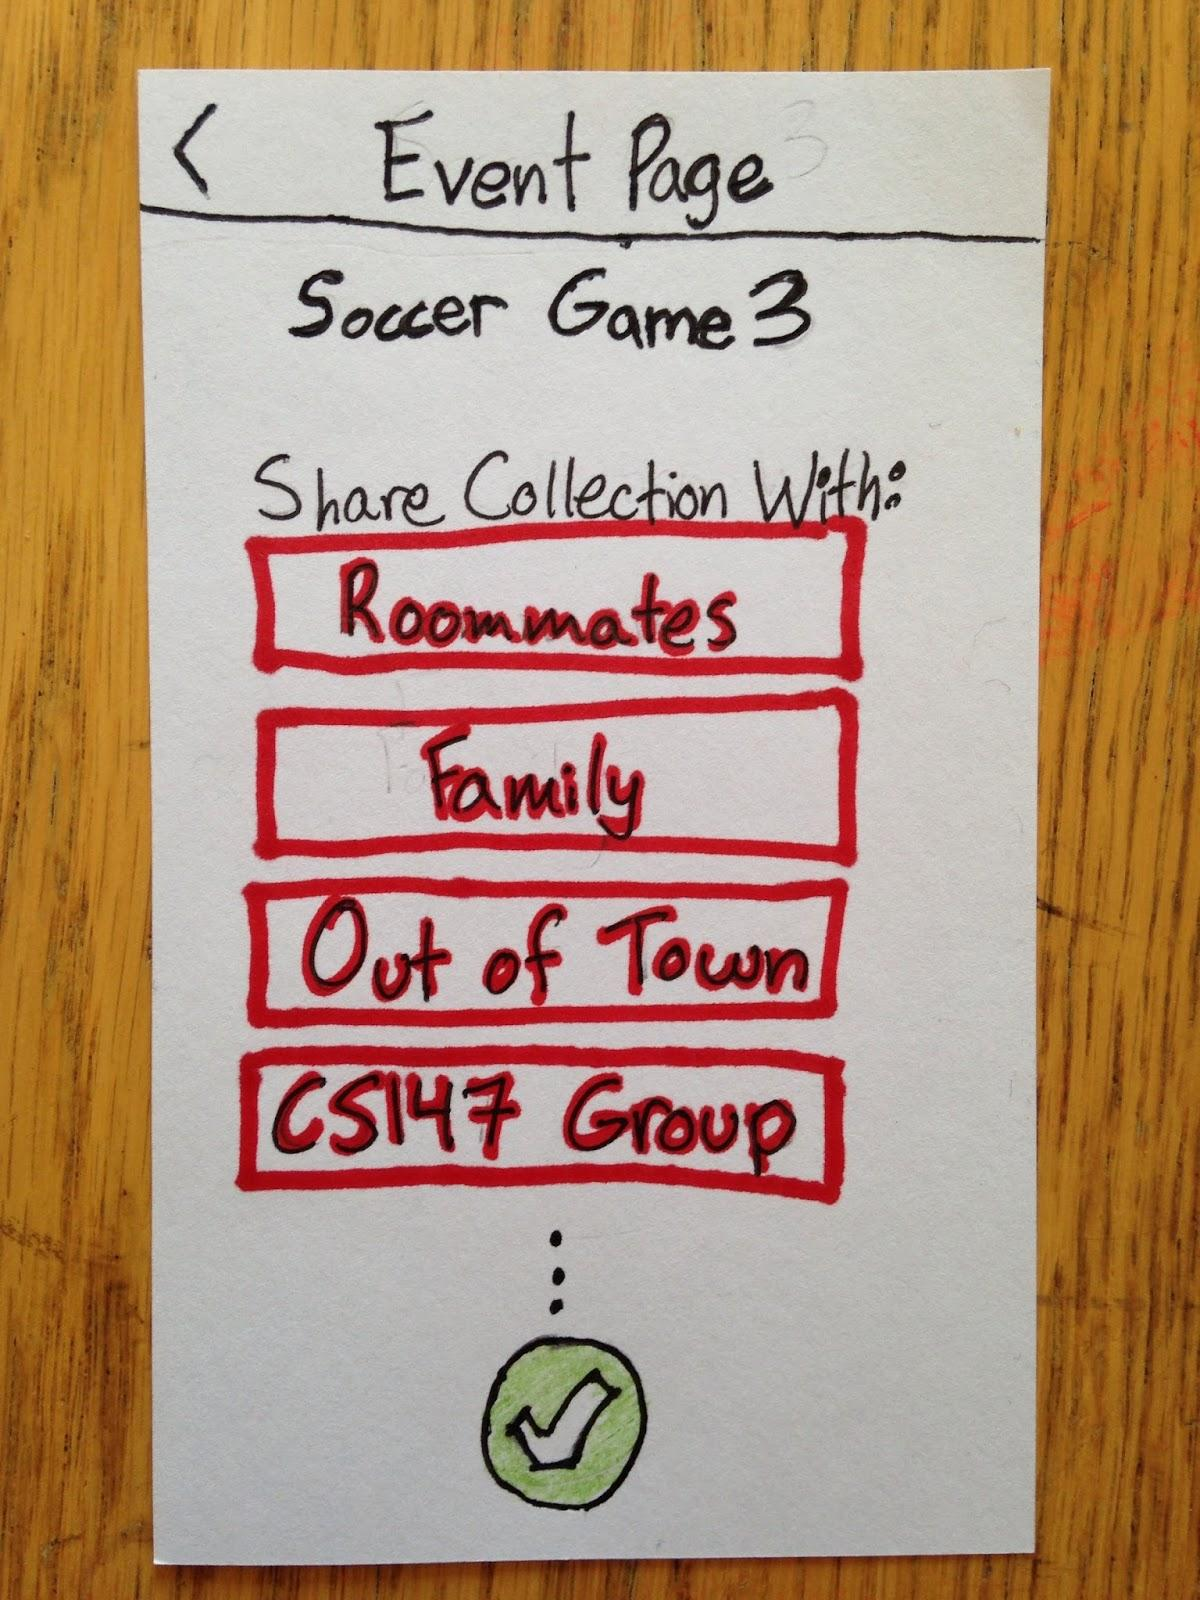 < Event Page
Soccer Game 3
Share Collection With:
Roommates
Family
Out of Town
CS147 Group